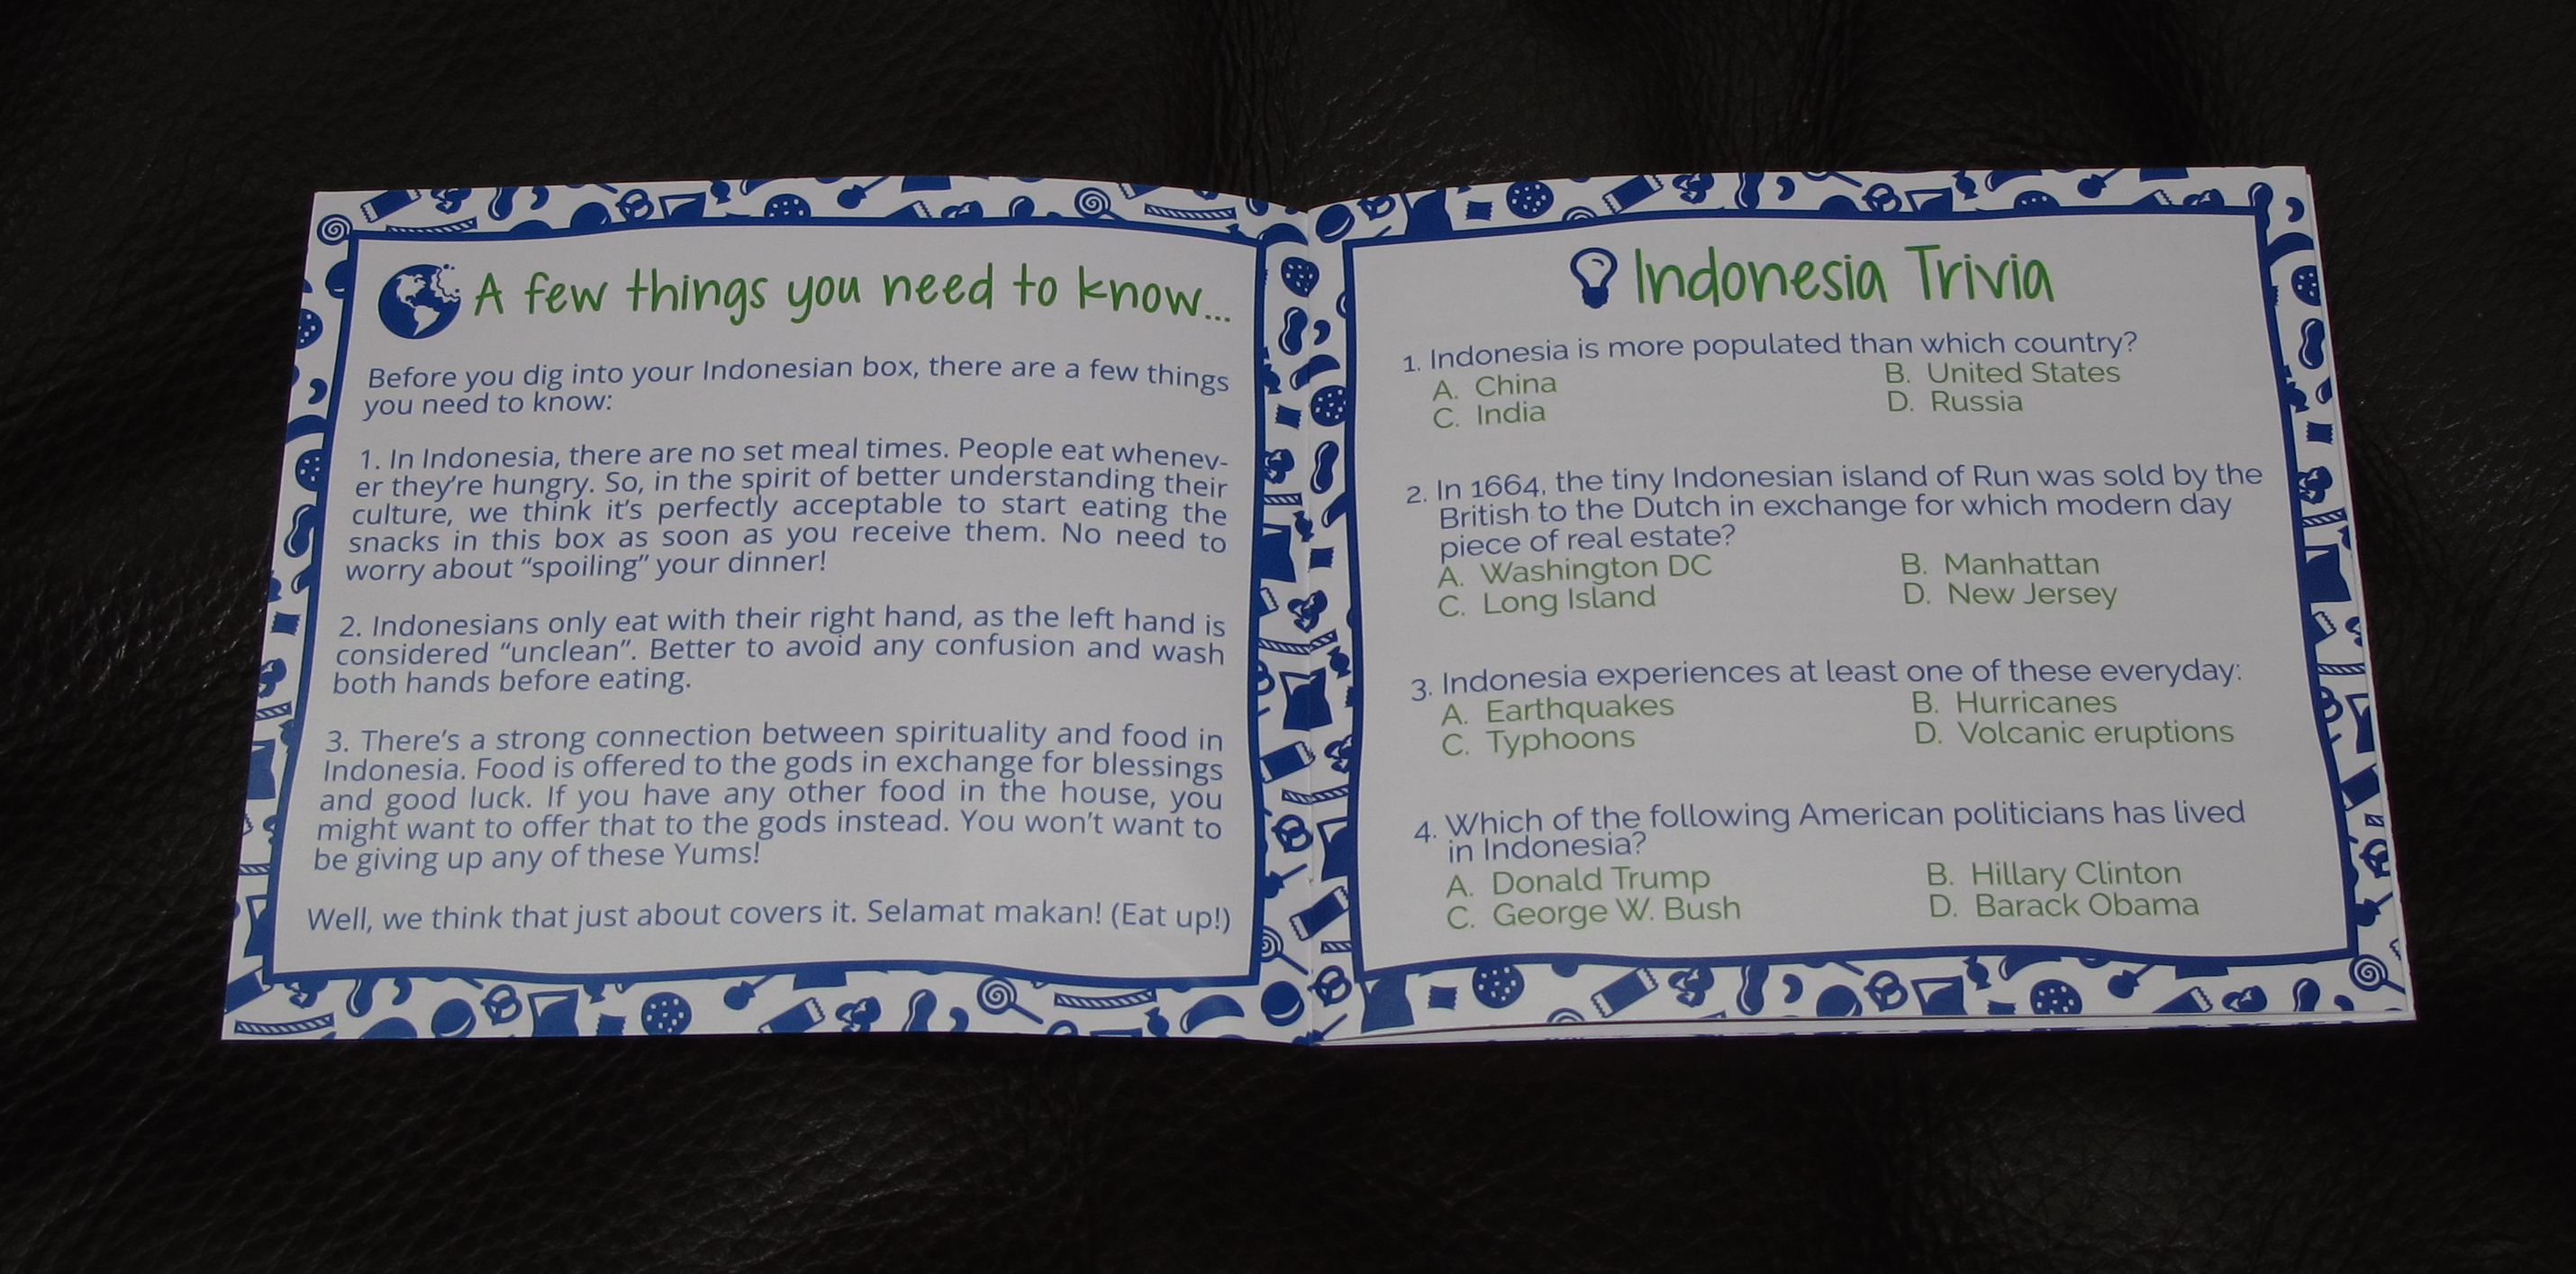 A few things you need to know...
Before you dig into your Indonesian box, there are a few things
you need to know:
1. In Indonesia, there are no set meal times. People eat whenev-
er they're hungry. So, in the spirit of better understanding their
culture, we think it's perfectly acceptable to start eating the
snacks in this box as soon as you receive them. No need to
worry about “spoiling” your dinner!
2. Indonesians only eat with their right hand, as the left hand is
considered “unclean”. Better to avoid any confusion and wash
both hands before eating.
3. There's a strong connection between spirituality and food in
Indonesia. Food is offered to the gods in exchange for blessings
and good luck. If you have any other food in the house, you
might want to offer that to the gods instead. You won't want to
be giving up any of these Yums!
Well, we think that just about covers it. Selamat makan! (Eat up!)
Indonesia Trivia
1. Indonesia is more populated than which country?
A. China B. United States
C. India D. Russia
2. In 1664, the tiny Indonesian island of Run was sold by the
British to the Dutch in exchange for which modern day
piece of real estate?
A. Washington DC B. Manhattan
C. Long Island D. New Jersey
3. Indonesia experiences at least one of these everyday:
A. Earthquakes B. Hurricanes
C. Typhoons D. Volcanic eruptions
4. Which of the following American politicians has lived
in Indonesia?
A. Donald Trump B. Hillary Clinton
C. George W. Bush D. Barack Obama